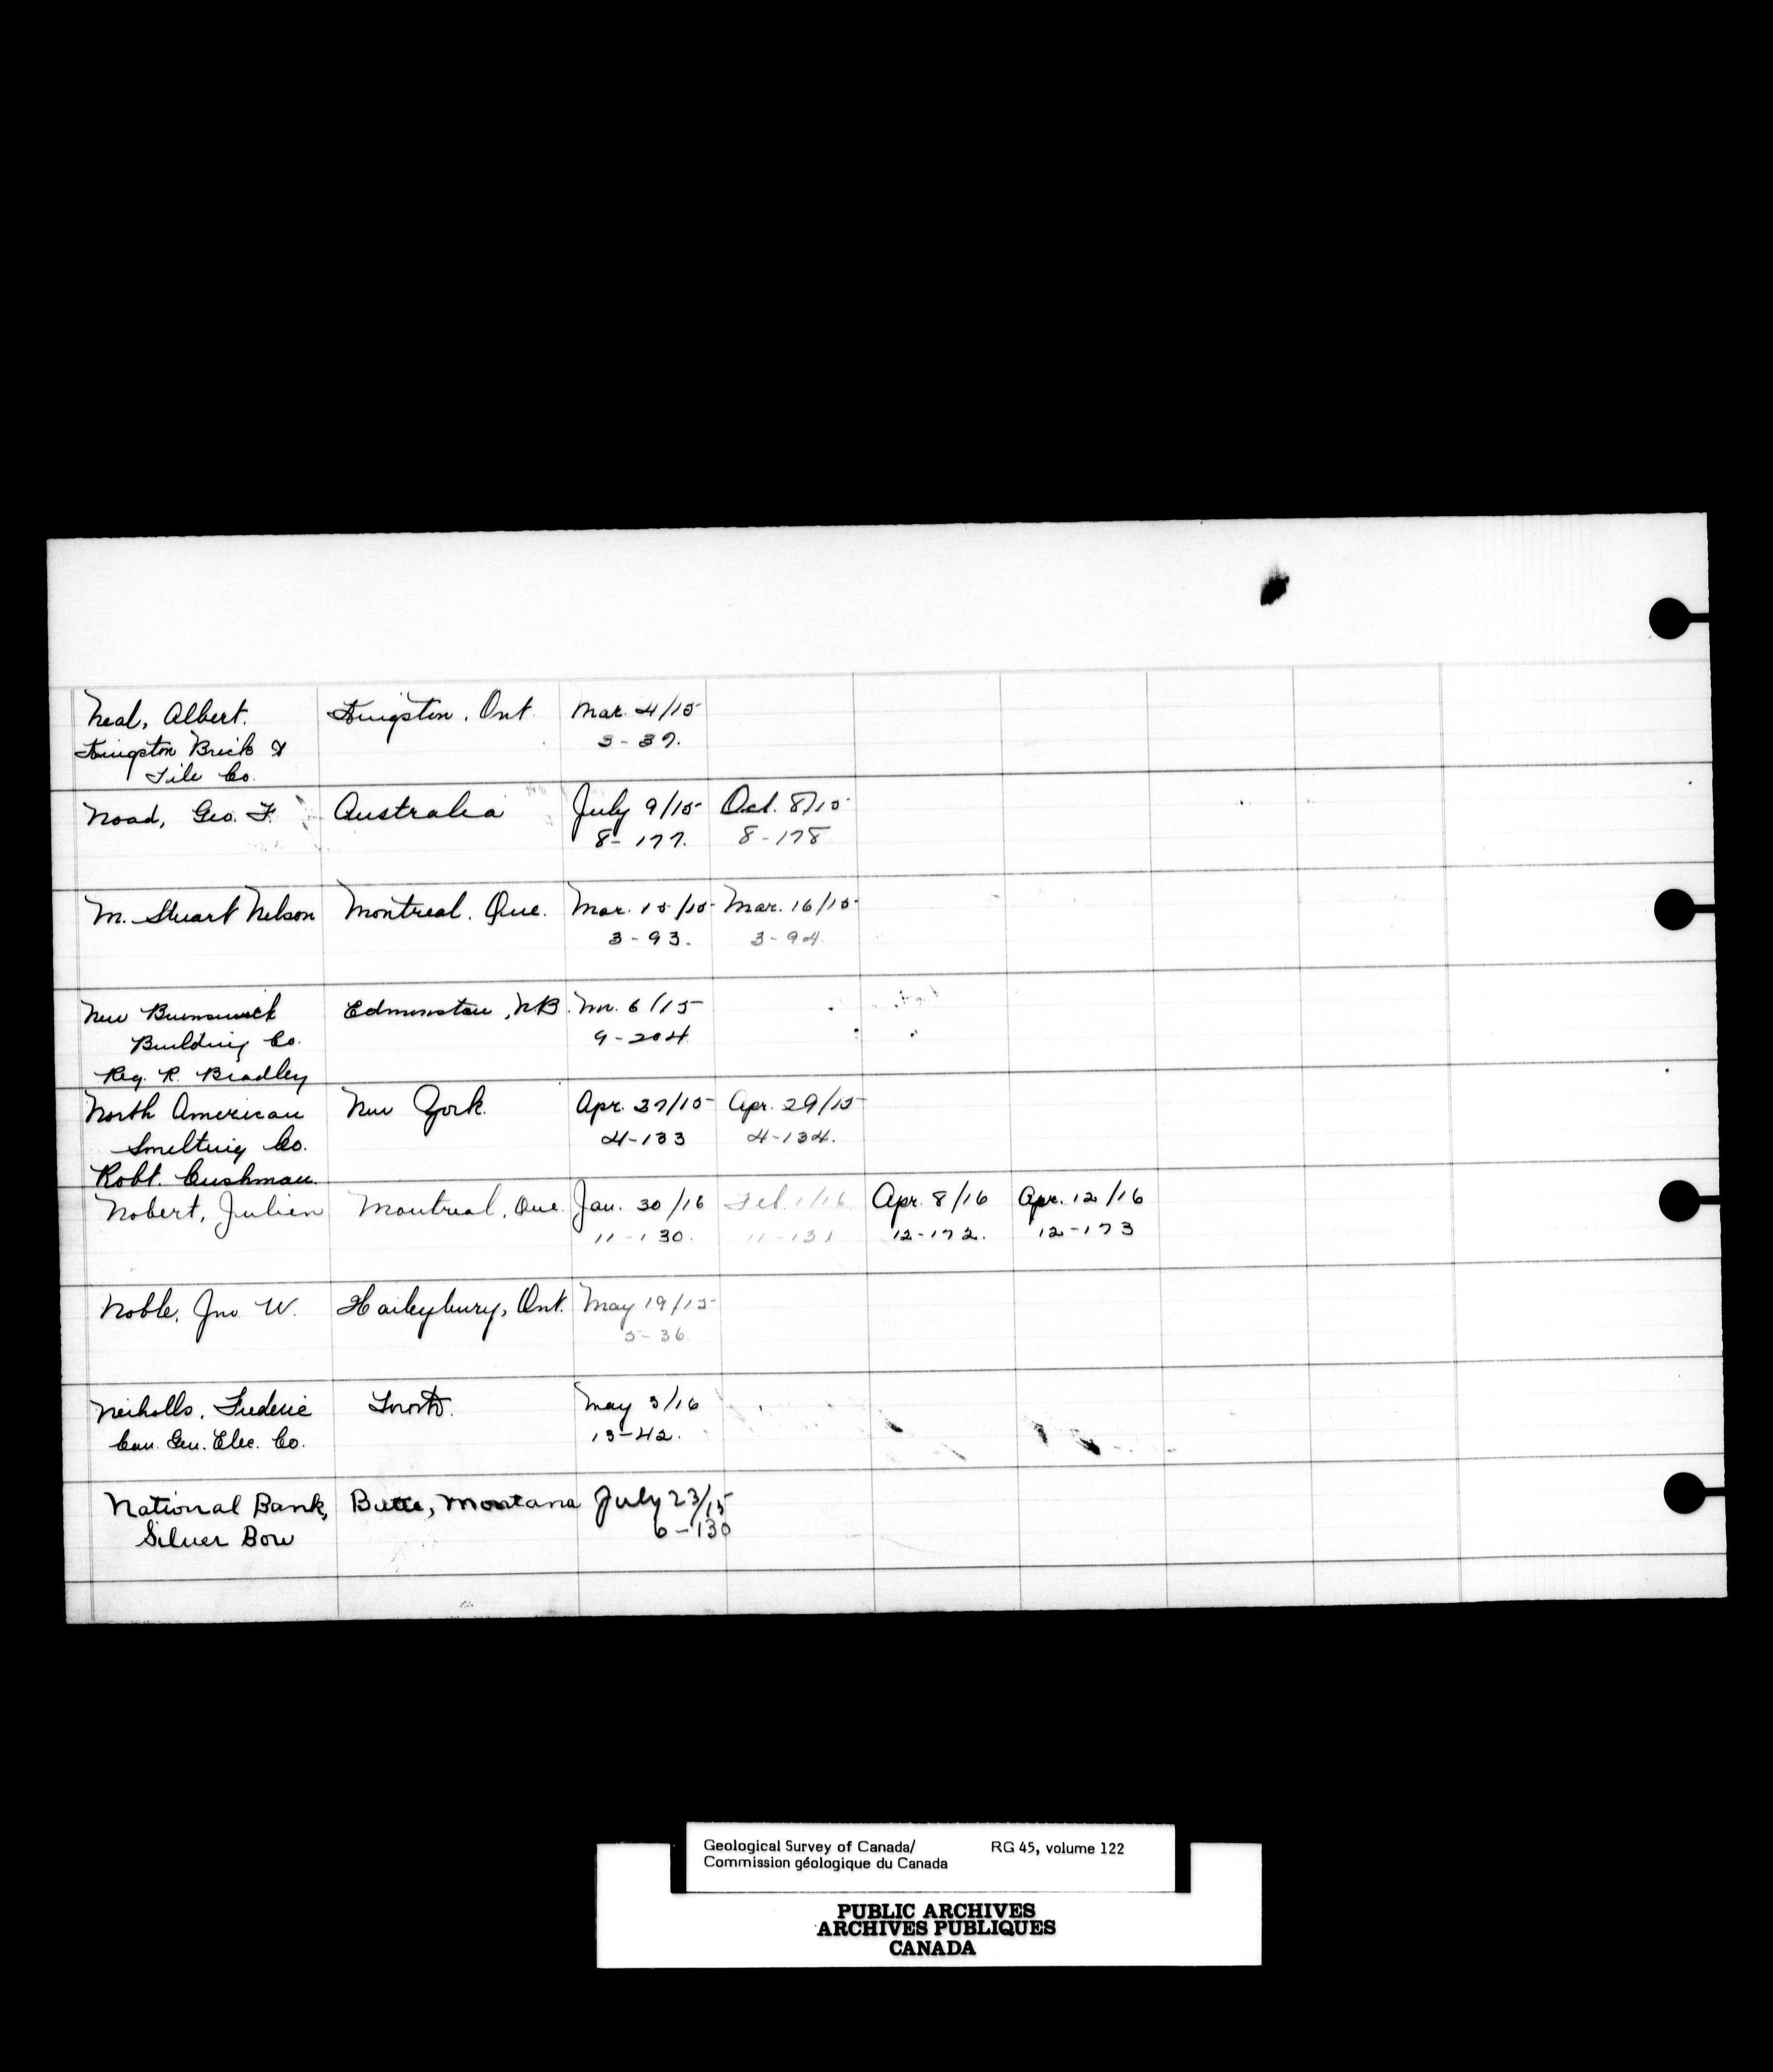 Neal, Albert. Kingston, Ont. Mar. 4/15
Kingston Brick & 3-37.
Tile Co.
Noad, Geo. F. Australia July 9/15 Oct. 8/15
8-177. 8-178
M. Stuart Nelson Montreal, Que. Mar. 15/15 Mar. 16/15
3-93. 3-94.
New Brunswick Edmunston, N.B. 6/15
Building Co. 9-204
Reg. R. Bradley
North American New York. Apr. 27/15 Apr. 29/15
Smelting Co. 4-133 4-134.
Robt. Cushman.
Nobert, Julien Montreal, Que. Jan. 30/16 Feb. 1/16 Apr. 8/16 Apr. 12/16
11-130. 11-131 12-172. 12-173
Noble, Jno. W. Haileybury, Ont. May 19/15
5-36.
Nicholls, Frederic Toronto. May 3/16
Can. Gen. Elec. Co. 13-42.
National Bank, Butte, Montana July 23/15
Silver Bow 6-130
Geological Survey of Canada/ RG 45, volume 122
Commission géologique du Canada
PUBLIC ARCHIVES
ARCHIVES PUBLIQUES
CANADA